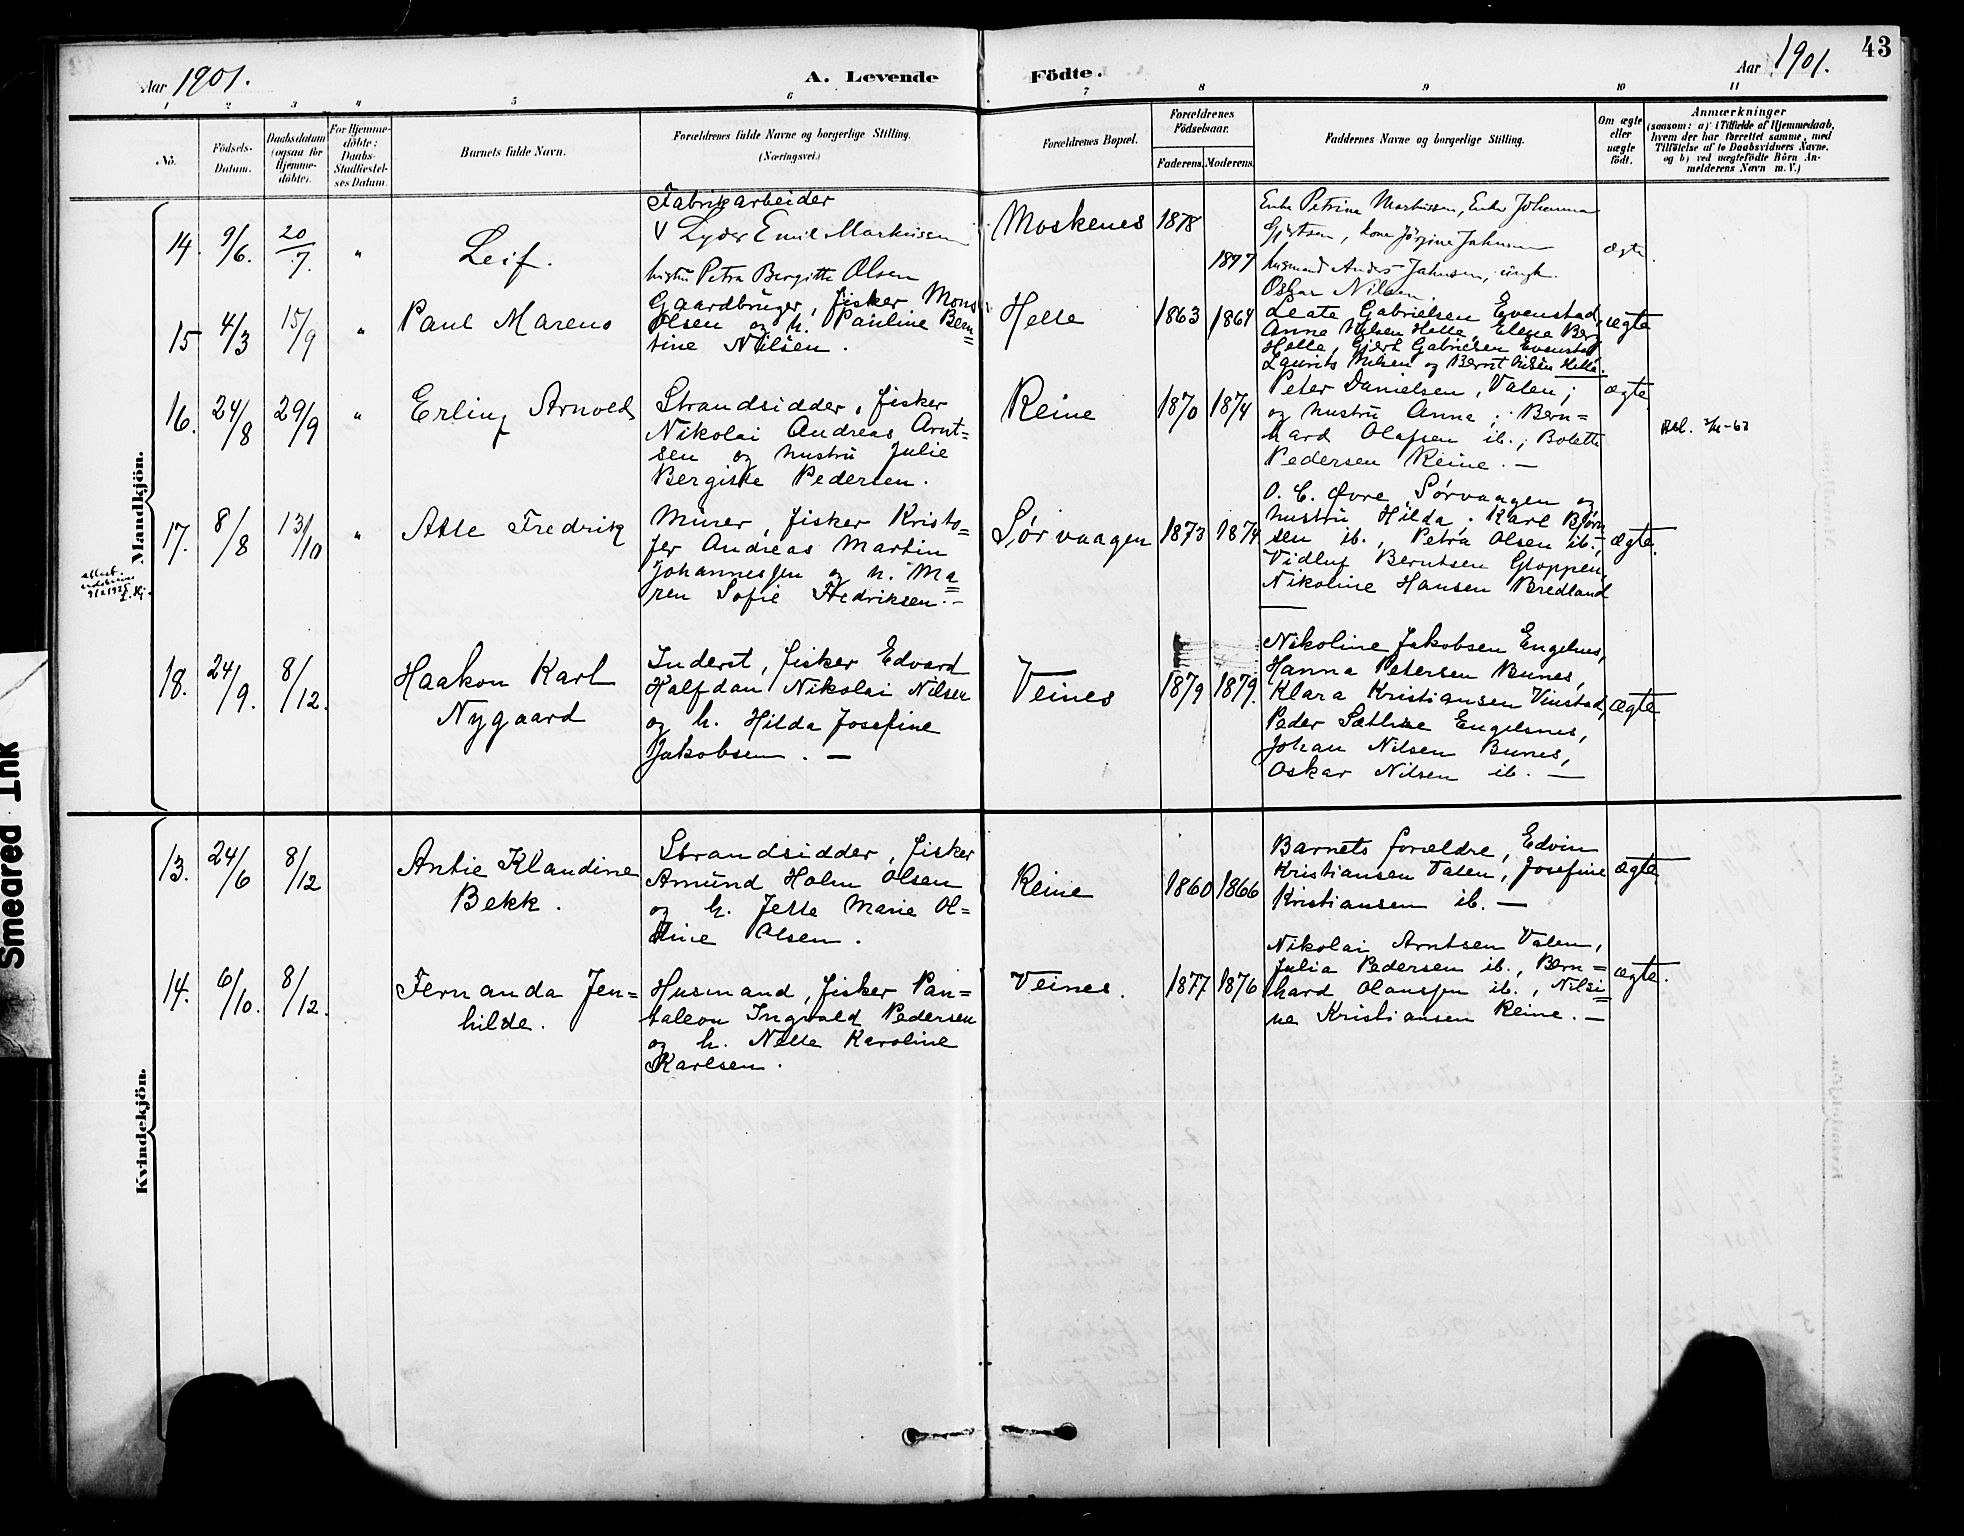 43
Aar 1901.
A. Levende Födte.
Aar 1901.
1 2 3 4 5 6 7 8 9 10 11
No.
Födsels-
Datum.
Daabsdatum
(ogsaa for
Hjemme-
döbte).
For Hjemme-
döbte:
Daabs-
Stadfæstel-
ses Datum.
Barnets fulde Navn.
Forældrenes fulde Navne og borgerlige Stilling.
(Næringsvei.)
Forældrenes Bopæl.
Forældrenes
Födselsaar.
Faderens. Moderens.
Faddernes Navne og borgerlige Stilling.
Om ægte
eller
uægte
født.
Anmærkninger
(saasom: a) i Tilfælde af Hjemmedaab,
hvem der har forrettet samme, med
Tilföielse af to Daabsvidners Navne,
og b) ved uægtefödte Börn An-
melderens Navn m. V.)
Mandkjön.
14. 9/6. 20/7. "
Leif.
Fabrikarbeider
Lyder Emil Markusen
hustru Petra Bergitte Olsen
Moskenes
1878
1877
Enke Petrine Markussen, Enke Johanna
Gjertsen, kone Jørgine Jahnsen
husmand Anders Jahnsen, ungk.
Oskar Nilsen.
ægte.
15 4/3 15/9 "
Paul Mareno
Gaardbruger, fisker Mons
Olsen og h. Pauline Bern-
tine Nilsen.
Helle
1863 1864
Leate Gabrielsen Evenstad,
Anne Nilsen Helle, Elene Berg
Helle, Gjert Gabrielsen Evenstad
Laurits Nilsen og Bernt Nilsen Helle.
ægte
16. 24/8 29/9 "
Erling Arnold
Strandsidder, fisker
Nikolai Andreas Arnt-
sen og hustru Julie
Bergitte Pedersen.
Reine
1870 1874
Peter Danielsen, Valen;
og hustru Anna; Bern-
hard Olafsen ib.; Bolette
Pedersen Reine. —
ægte
17. 8/8 13/10 "
Atle Fredrik
Murer, fisker Kristo-
fer Andreas Martin
Johannessen og h. Ma-
ren Sofie Fredriksen. —
Sørvaagen
1873 1874
O. C. Øvre, Sørvaagen og
hustru Hilda, Karl Bjørn-
sen ib., Petra Olsen ib.,
Vidluf Berntsen Gloppen,
Nikoline Hansen Bredland
ægte.
18. 24/9. 8/12.
Haakon Karl
Nygaard
Inderst, fisker Edvard
Halfdan Nikolai Nilsen
og h. Hilda Josefine
Jakobsen. —
Veines
1879 1879.
Nikoline Jakobsen Engelnes,
Hanna Petersen Bunes,
Klara Kristiansen Vinstad,
Peder Sæthre Engelsnes,
Johan Nilsen Bunes,
Oskar Nilsen ib. —
ægte
Kvindekjön.
13. 24/6 8/12
Antie Klaudine
Bekk.
Strandsidder, fisker
Amund Holm Olsen
og h. Jette Marie Ol-
ine Olsen.
Reine
1860 1866
Barnets forældre, Edvin
Kristiansen Valen, Josefine
Kristiansen ib. —
ægte
14. 6/10. 8/12.
Fernanda Jen-
hilde.
Husmand, fisker Pan-
taleon Ingvald Pedersen
og h. Nelle Karoline
Karlsen.
Veines.
1877 1876
Nikolai Arntsen Valen,
Julia Pedersen ib., Bern-
hard Olaussen ib., Nilsi-
ne Kristiansen Reine. —
ægte.
Smeared Ink